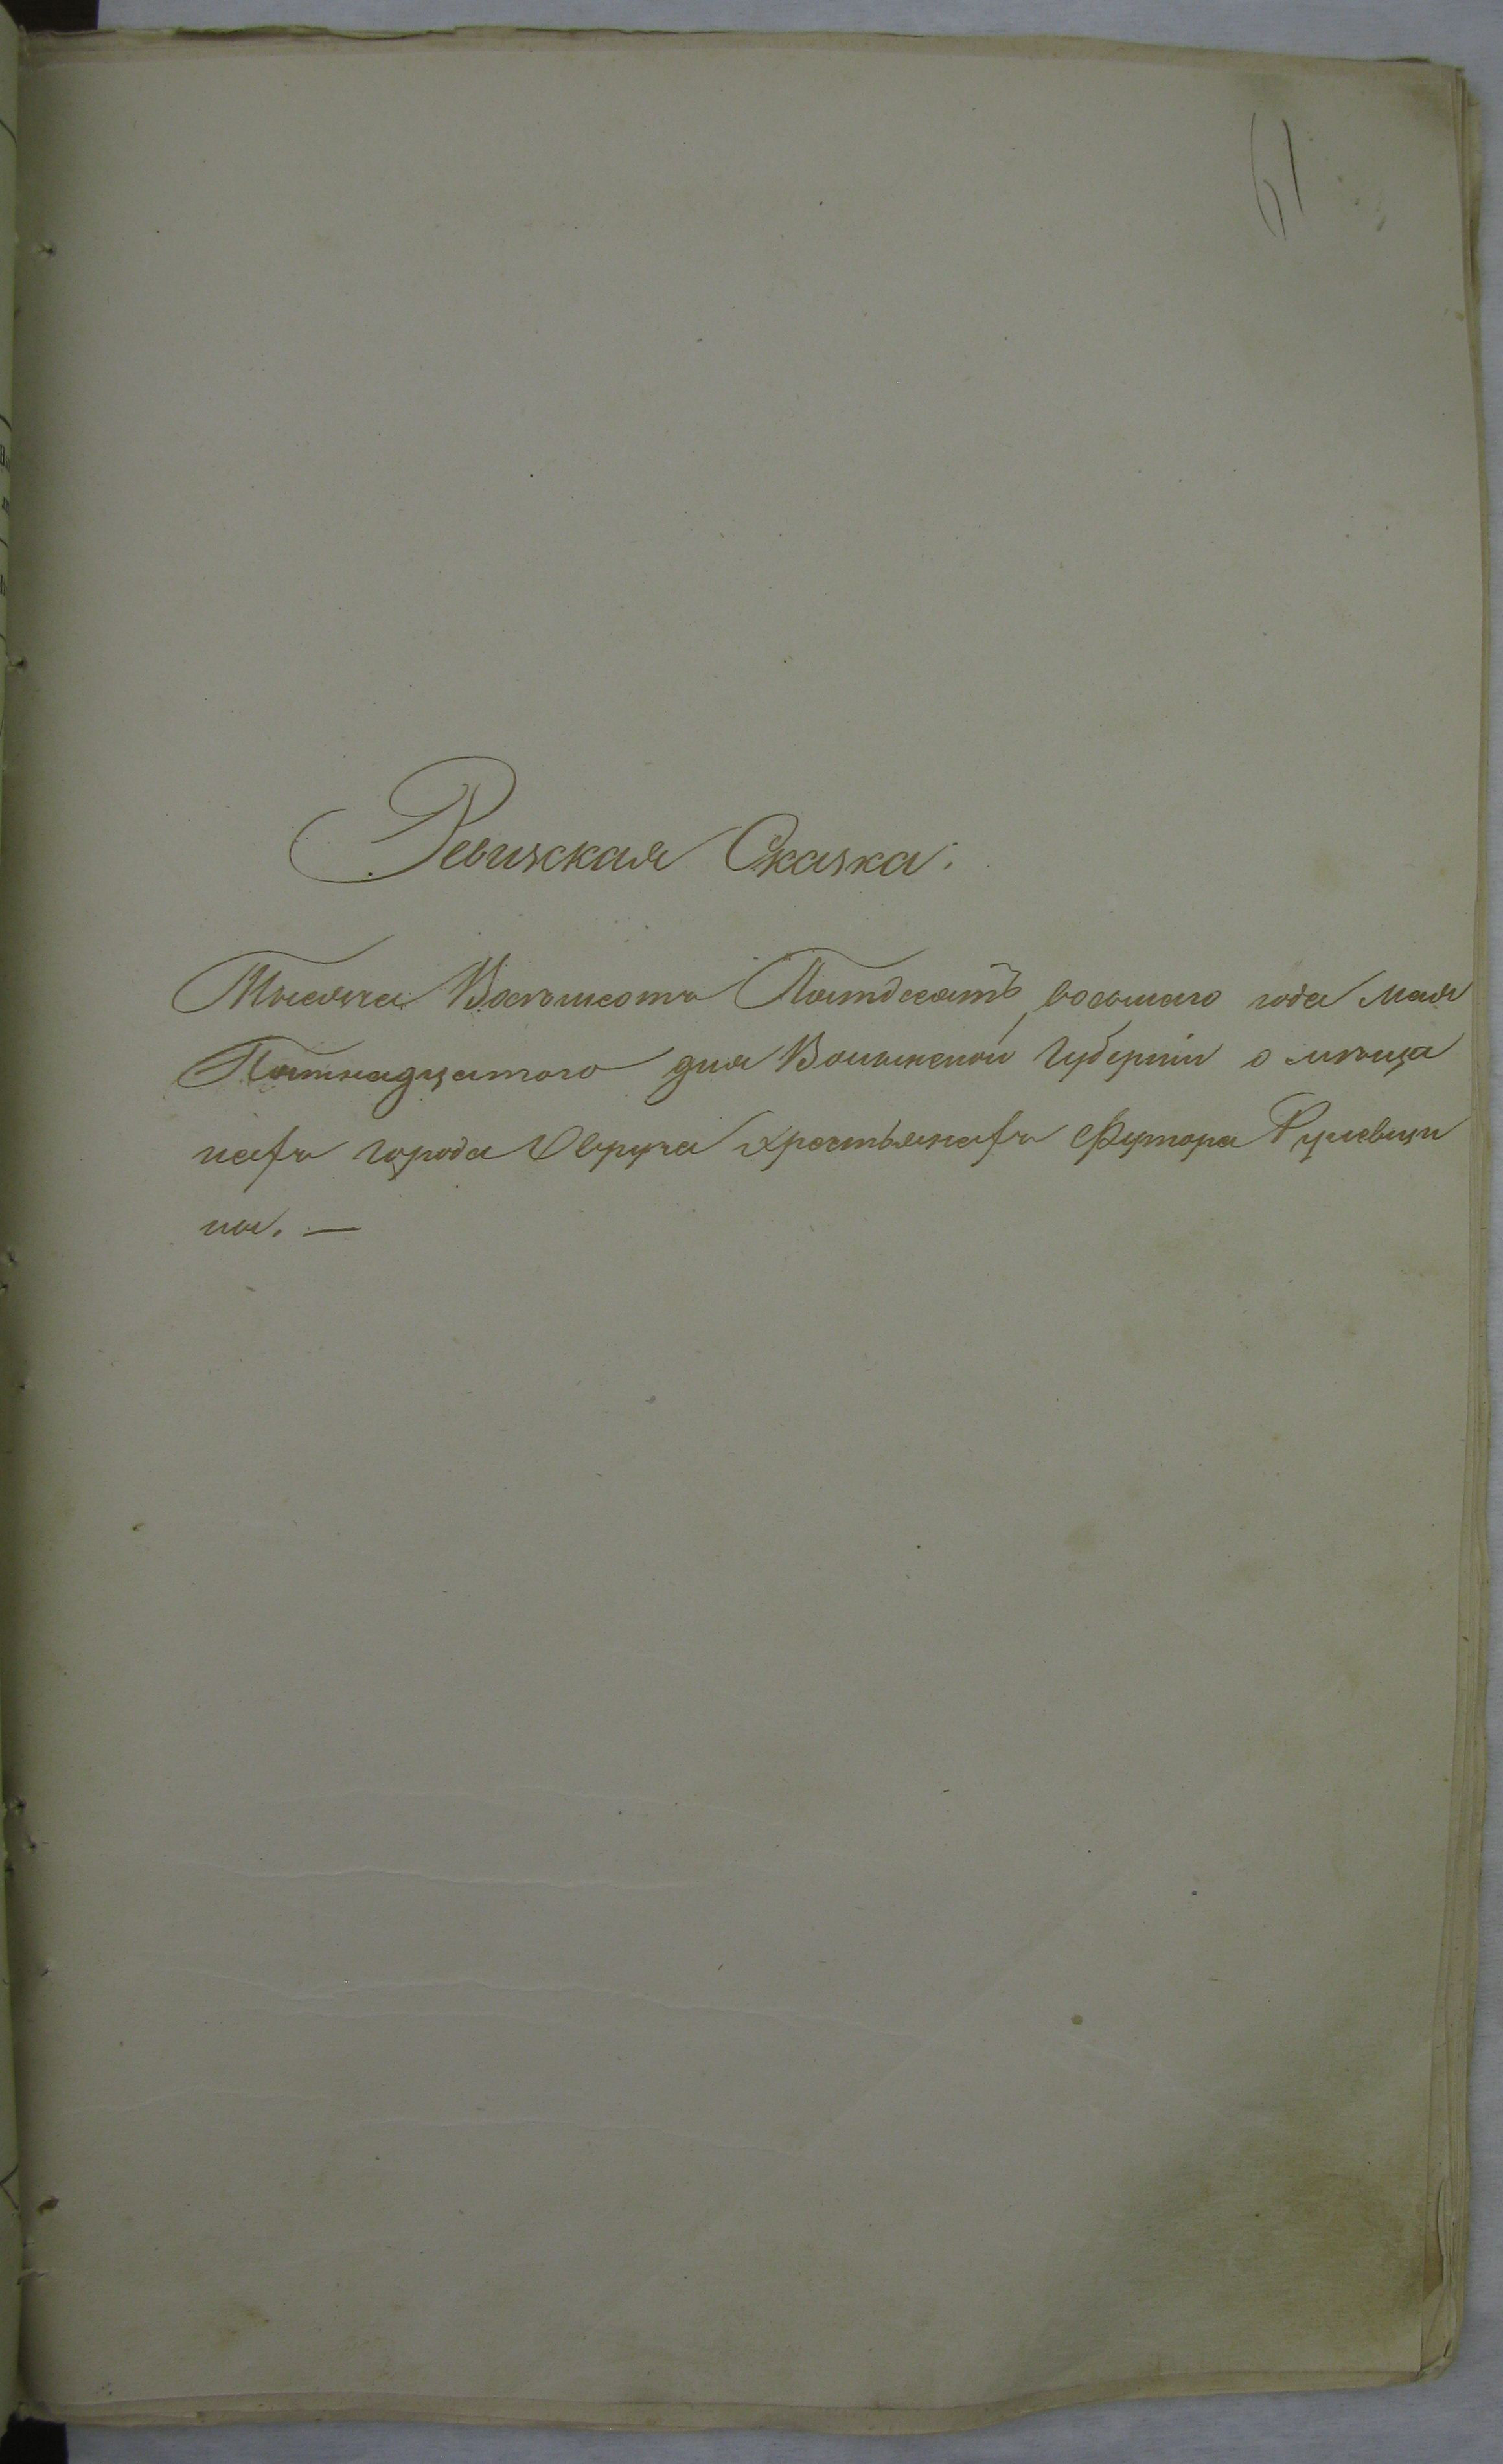 61
Ревизская Сказка:
Тысяча Восемьсотъ Пятдесятъ восьмаго года Мая
Пятнадцатого дня Волынской Губерніи о мѣща
нахъ города Овруча христьянахъ Футора
ны. —